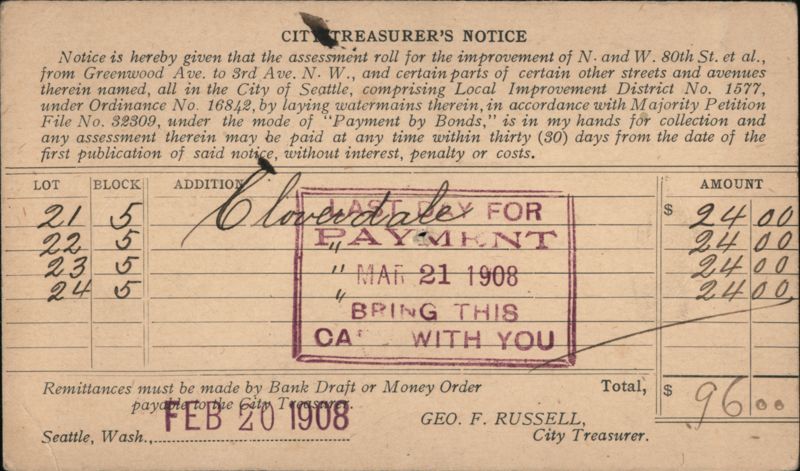 CITY TREASURER'S NOTICE
Notice is hereby given that the assessment roll for the improvement of N. and W. 80th St. et al.,
from Greenwood Ave. to 3rd Ave. N. W., and certain parts of certain other streets and avenues
therein named, all in the City of Seattle, comprising Local Improvement District No. 1577,
under Ordinance No. 16842, by laying watermains therein, in accordance with Majority Petition
File No. 32309, under the mode of "Payment by Bonds," is in my hands for collection and
any assessment therein may be paid at any time within thirty (30) days from the date of the
first publication of said notice, without interest, penalty or costs.
LOT BLOCK ADDITION AMOUNT
21 5 Cloverdale $ 24 00
22 5 " 24 00
23 5 " 24 00
24 5 " 24 00
LAST DAY FOR
PAYMENT
MAR 21 1908
BRING THIS
CARD WITH YOU
Remittances must be made by Bank Draft or Money Order
payable to the City Treasurer.
Total, $ 96 00
FEB 20 1908
Seattle, Wash.,
GEO. F. RUSSELL,
City Treasurer.